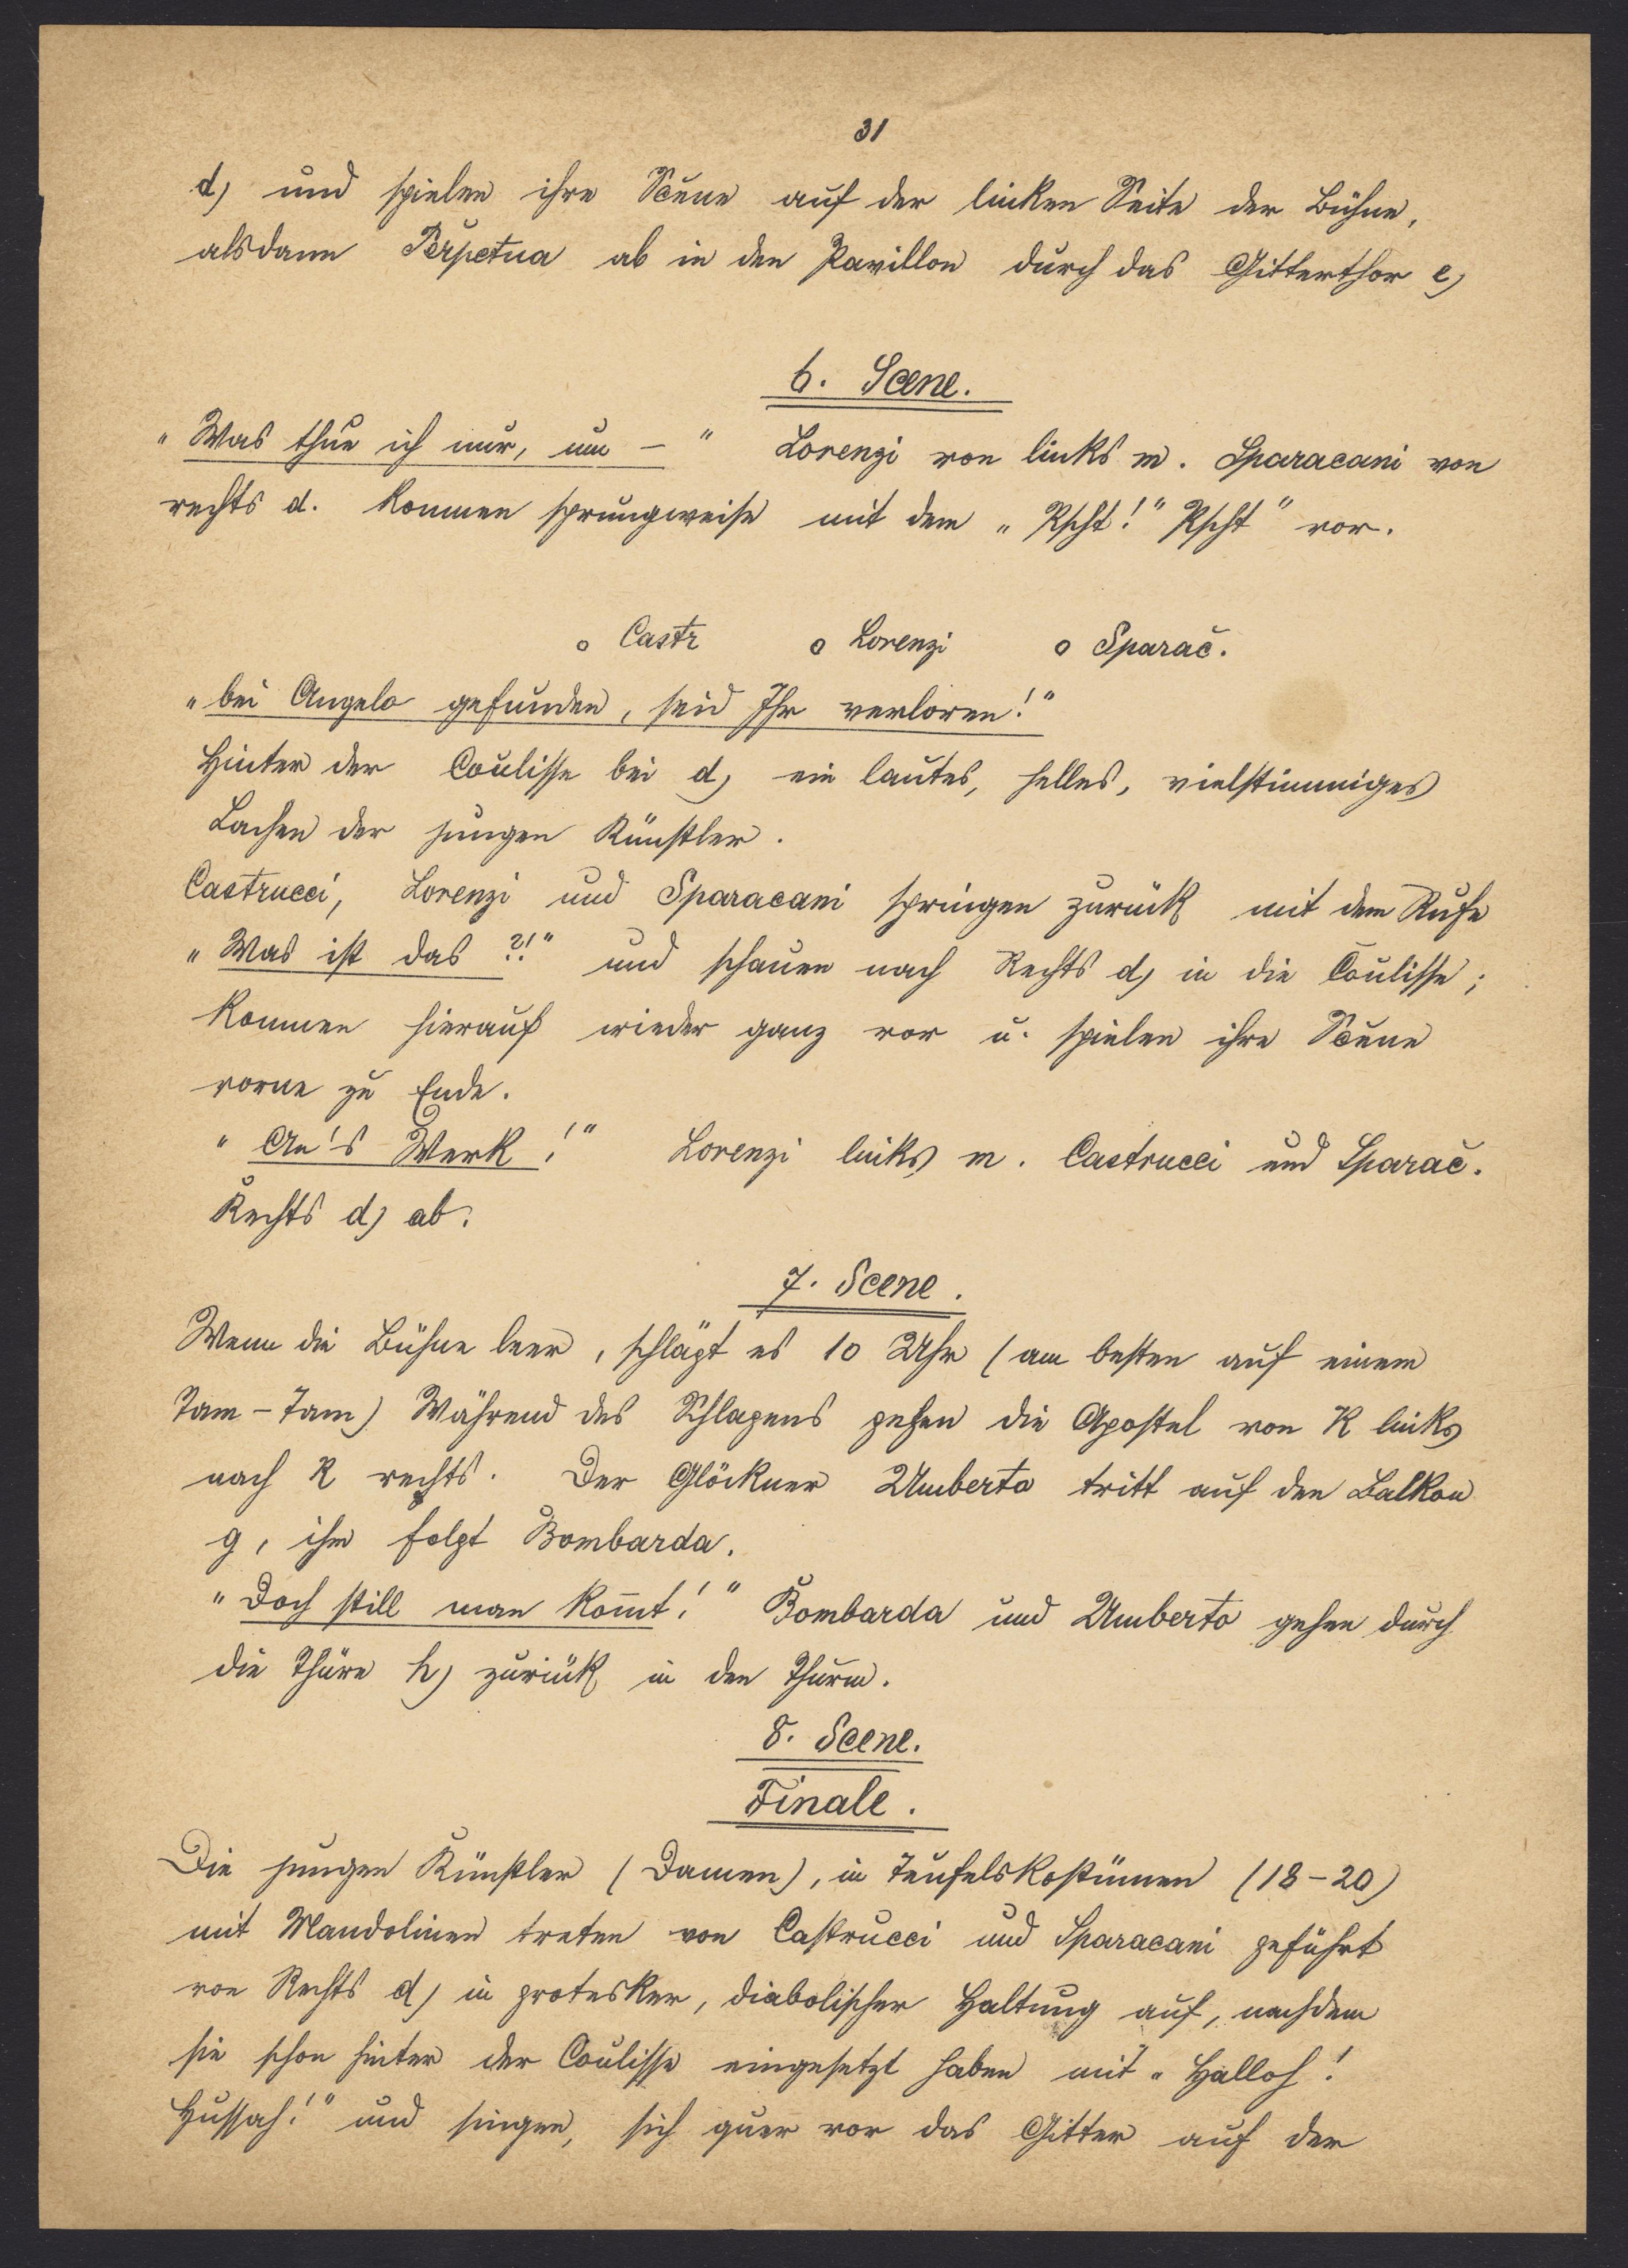 31
d) und spielen ihre Scene auf der linken Seite der Bühne,
alsdann Perpetua ab in den Pavillon durch das Gitterthor e)
6. Scene.
"Was thue ich nur, um - " Lorenzi von links m. Sparacani von
rechts d. kommen sprungweise mit dem "Pscht!" Pscht" vor.
o Castr o Lorenzi o Sparac̆.
"bei Angelo gefunden, seid Ihr verloren!"
Hinter der Coulisse bei d) ein lautes, helles, vielstimmiges
Lachen der jungen Künstler.
Castrucci, Lorenzi und Sparacani springen zurück mit dem Rufe
"Was ist das ?!" und schauen nach Rechts d) in die Coulisse;
kommen hierauf wieder ganz vor u. spielen ihre Scene
vorne zu Ende.
"An's Werk!" Lorenzi links m. Castrucci und Sparac̆.
Rechts d) ab.
7. Scene.
Wenn die Bühne leer, schlägt es 10 Uhr (am besten auf einem
Tam-Tam) Während des Schlagens gehen die Apostel von K links
nach K rechts. Der Glöckner Umberto tritt auf den Balkon
g, ihm folgt Bombarda.
"Doch still man kom̅t!" Bombarda und Umberto gehen durch
die Thüre h) zurück in den Thurm.
8. Scene.
Finale.
Die jungen Künstler (Damen), in Teufelskostümen (18-20)
mit Mandolinen treten von Castrucci und Sparacani geführt
von Rechts d) in grotesker, diabolischer Haltung auf, nachdem
sie schon hinter der Coulisse eingesetzt haben mit "Halloh!
Hussah!" und singen, sich quer vor das Gitter auf der